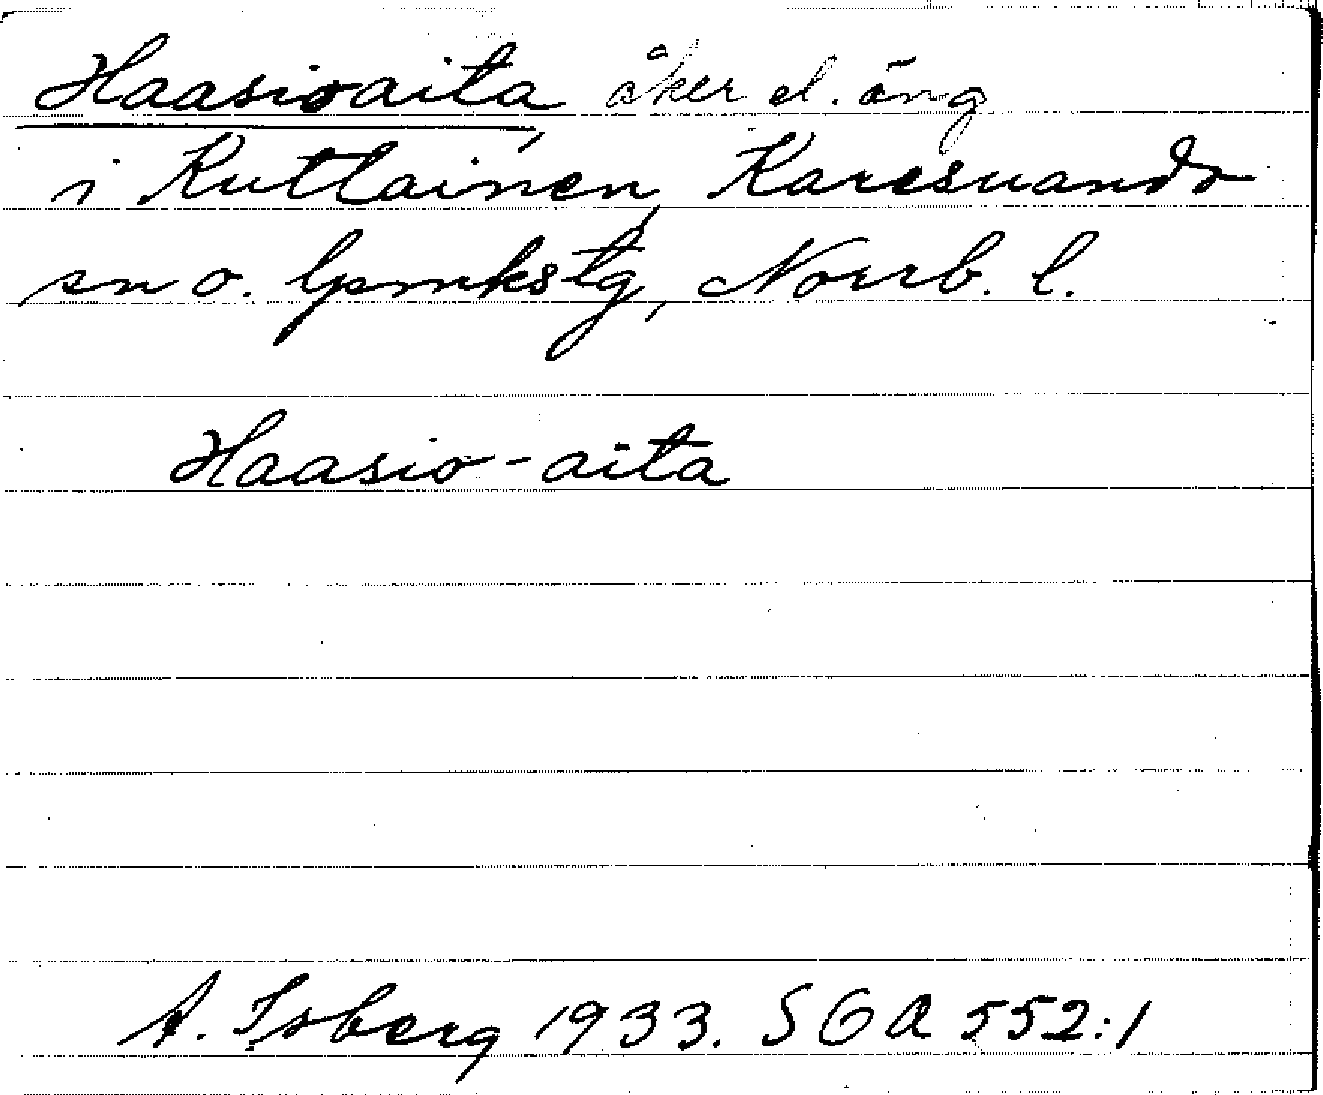 Haasioaita, åker el. äng
i Kuttainen, Karesuando
sn o. lpmkstg, Norrb. l.
Haasio-aita
A. Isberg 1933. SOA 552:1